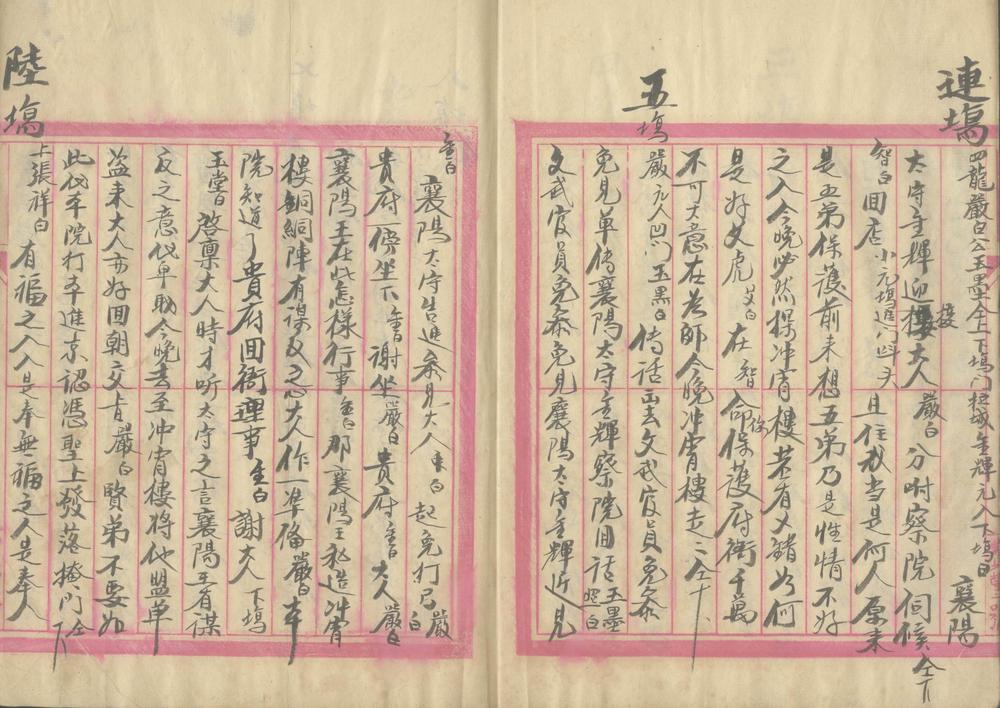 連塲
四龍嚴白公玉墨全上下塲門杻城金輝元人下塲白 襄陽
太守金輝迎接大人 嚴白 分咐察院伺候 全下
智白 回店 小元塲進门斜头 且住我当是何人原来
是五弟保護前来想五弟乃是性情不好
之人今晚必然探冲霄樓若有差錯如何
是好艾虎 艾白 在 智 命你保護府衙千萬
不可大意在 老師今晚冲霄樓走走 全下
五塲
嚴元人凹门玉墨白 傳話出去文武官員免叅
免見单傳襄陽太守金輝察院回話 玉墨照白
文武官員免叅免見襄陽太守金輝近見
金白 襄陽太守告進叅見大人 嚴白 起免打躬 嚴白
貴府一傍坐下 金白 謝坐 嚴白 貴府 金白 大人 嚴白
襄陽王在此怎樣行事 金白 那襄陽王私造冲霄
樓銅網陣有謀反之心大人作一準俻 嚴白 本
院知道了貴府回衙理事 金白 謝大人 下塲
玉堂白 啓禀大人時才听太守之言襄陽王有謀
反之意代单刀今晚去至冲霄樓將他盟单
盗来大人亦好回朝交旨 嚴白 賢弟不要如
此代本院打本進京認憑聖上發落掩门 全下
陸塲
上張祥白 有福之人人是奉無福之人是奉人